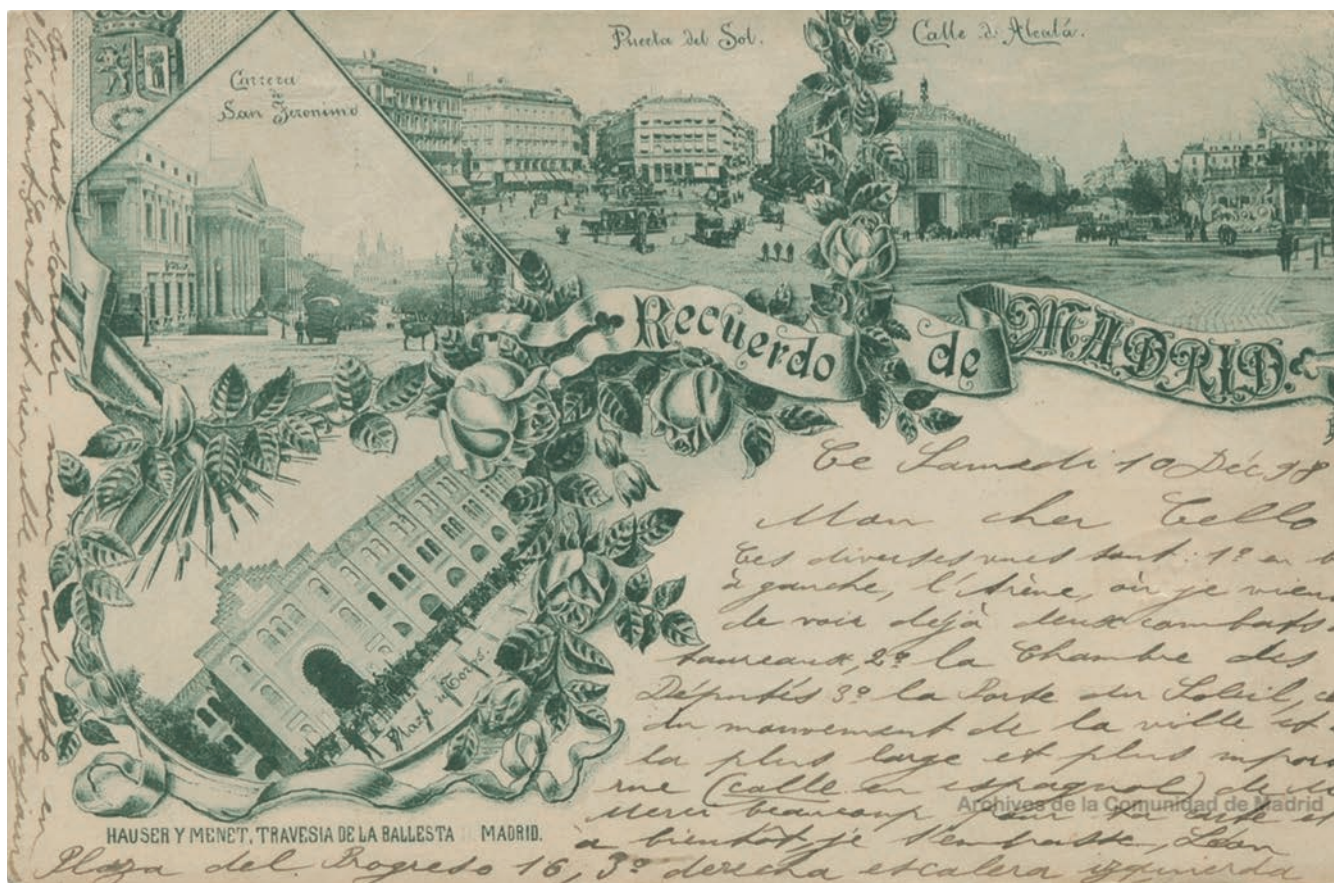 Carrera
de
San Jeronimo
Puerta del Sol.
Calle de Alcalá.
Recuerdo de MADRID.
Plaza de Toros.
Ce Samedi 10 Déc 98
Mon cher Tello
Ces diverses vues sont: 1º en
à gauche, l'Arène, où je
de voir déjà deux combats
taureaux, 2º la Chambre des
Députés 3º la Porte du Soleil,
du mouvement de la ville et
la plus large et plus
rue (calle en espagnol) de
Merci beaucoup pour ta carte et
à bientôt je t'embrasse, Léon
Plaza del Progreso 16, 3º derecha escalera izquierda
mon adresse en
arrivera toujours
HAUSER Y MENET, TRAVESIA DE LA BALLESTA MADRID.
Archivos de la Comunidad de Madrid